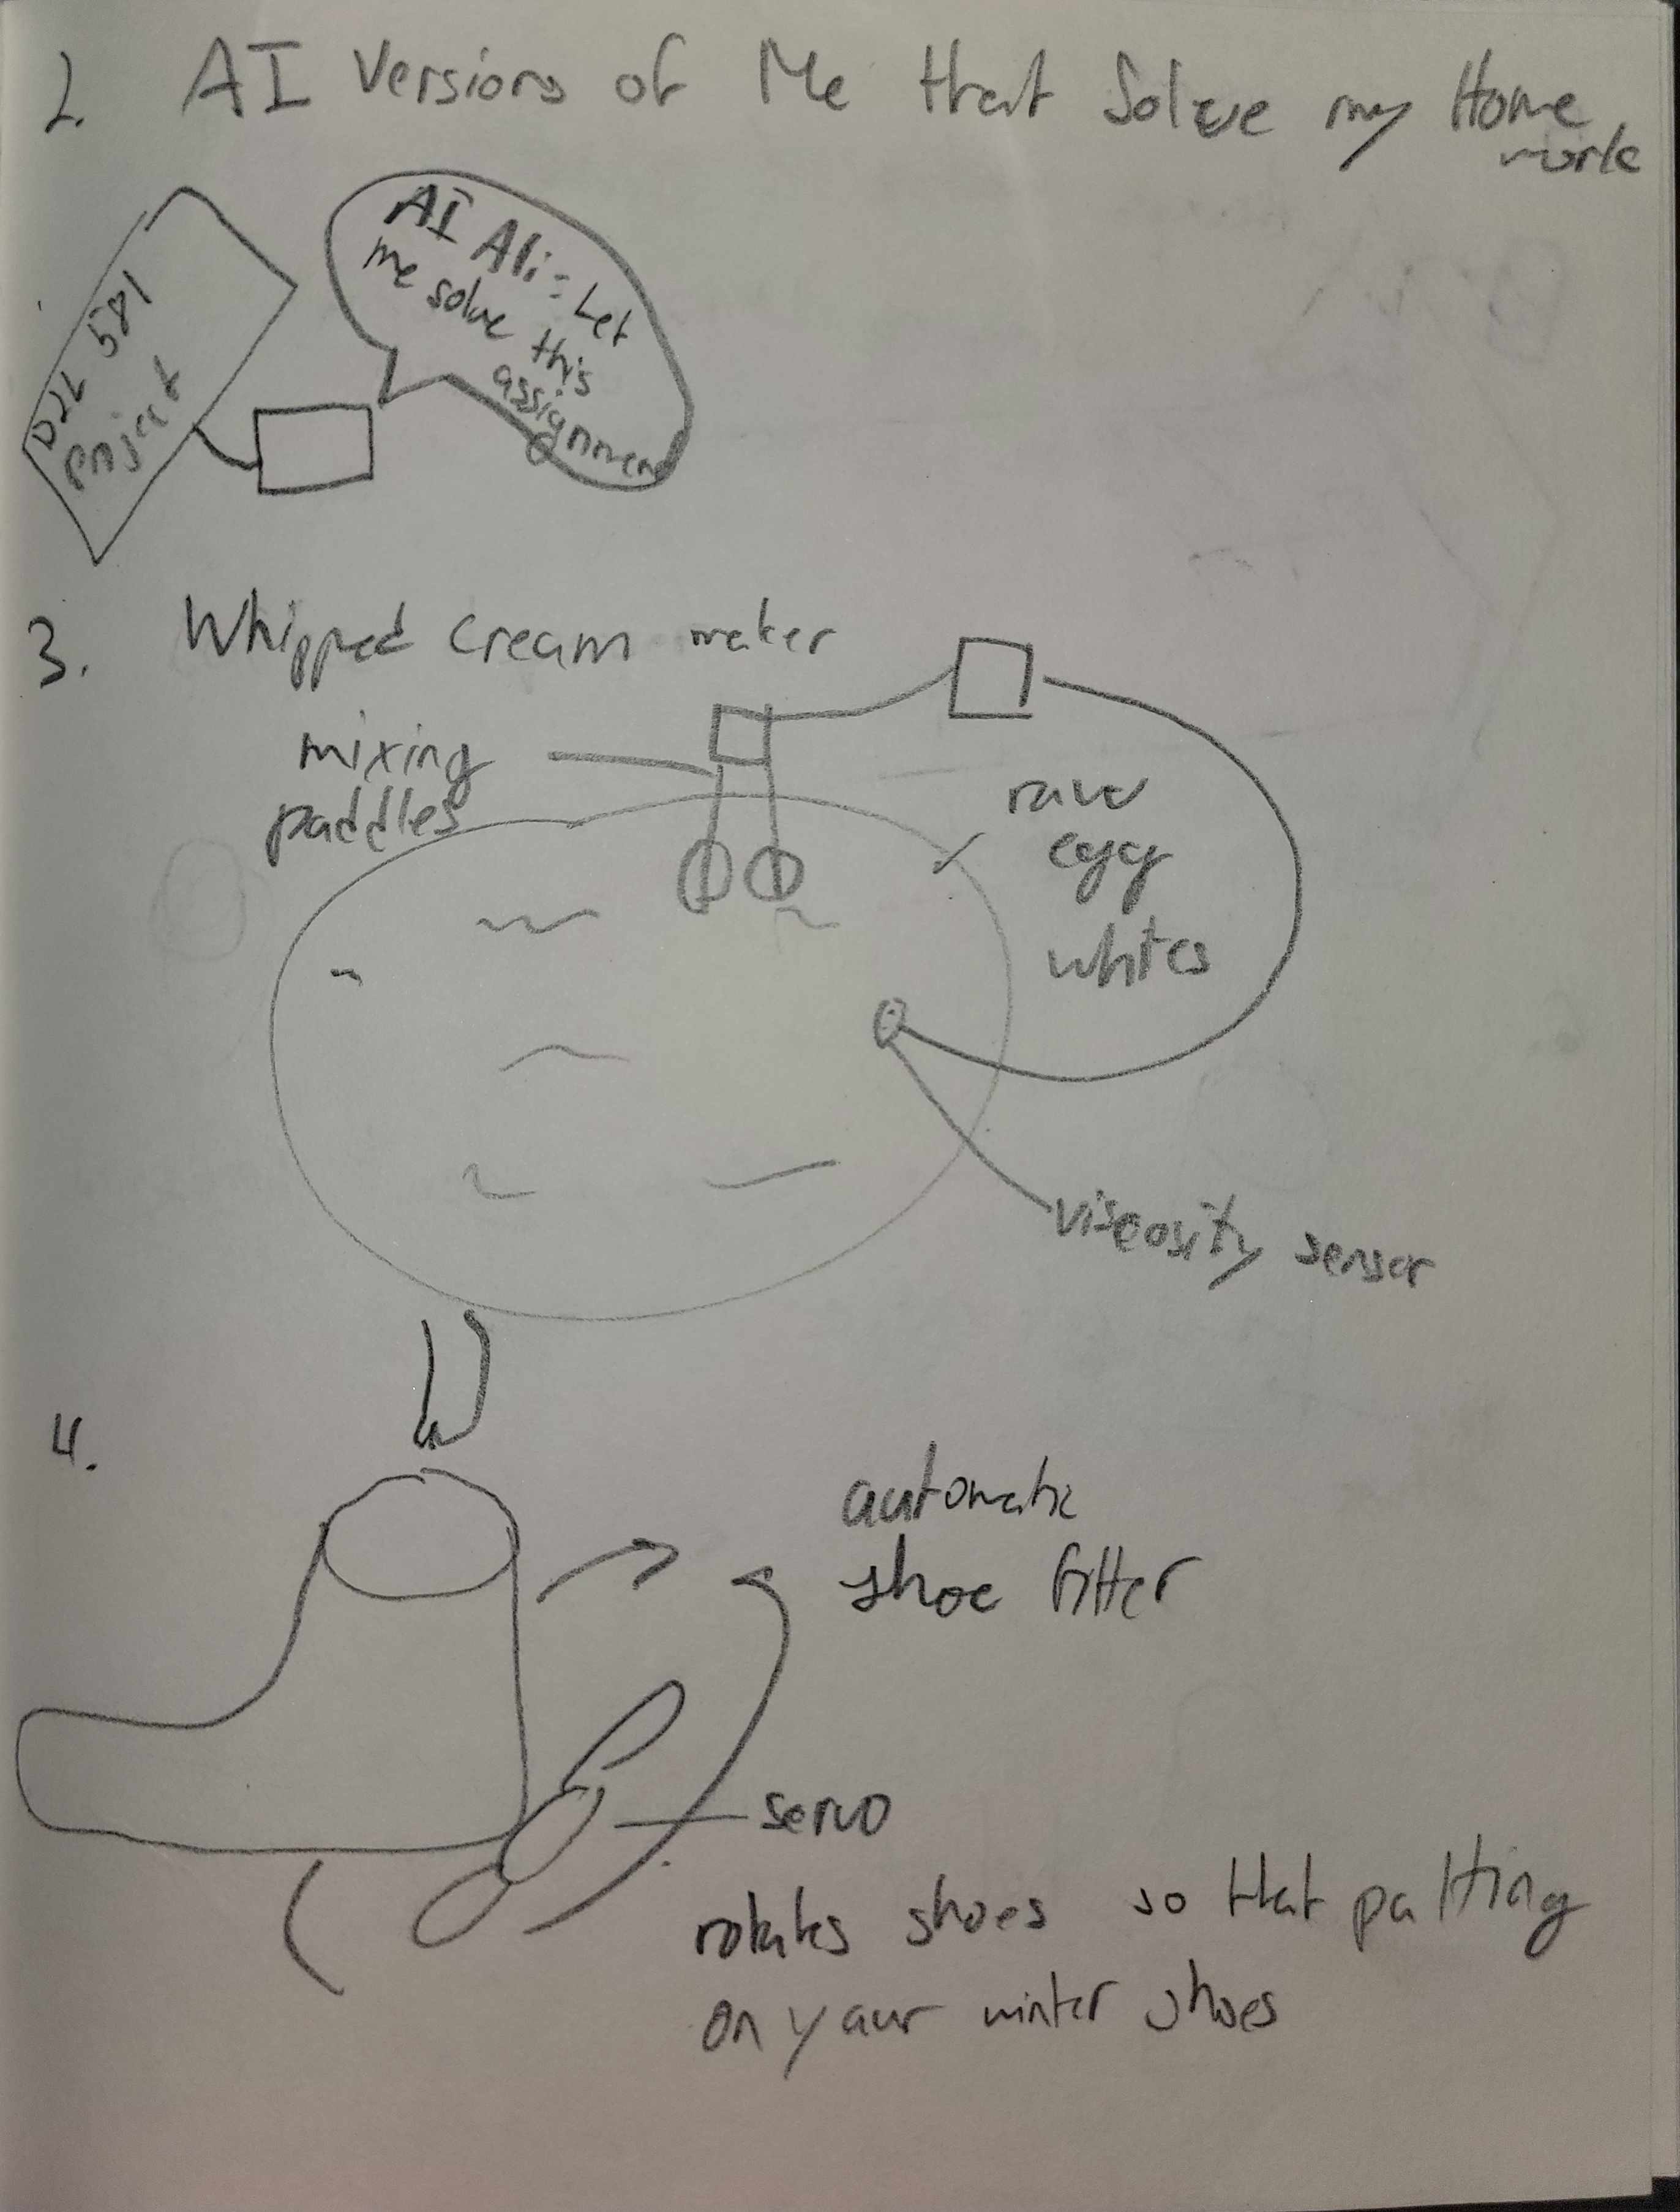 2. AI Versions of Me that Solve my Home
work
AI Ali: Let
me solve this
assignment
D2L 581
Project
3. Whipped cream maker
mixing
paddles
raw
egg
whites
viscosity sensor
4.
automatic
shoe fitter
servo
rotates shoes so that putting
on your winter shoes